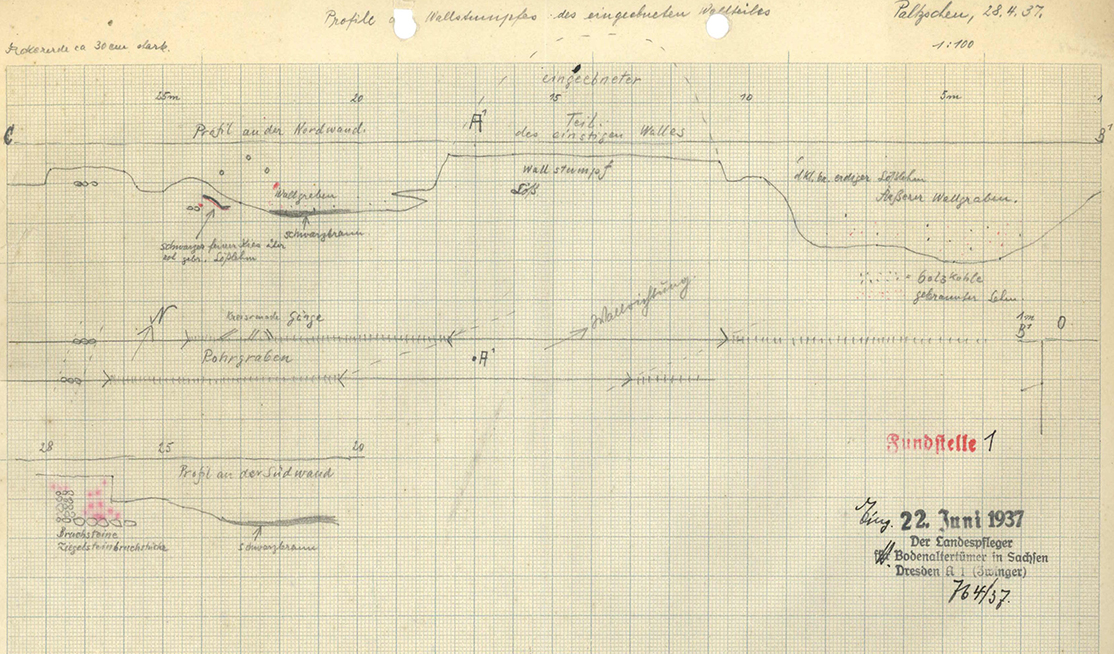 Profile des Wallstumpfes des eingeebneten Wallteiles
Paltzschen, 28.4.37.
Ackererde ca 30 cm stark.
1:100
eingeebneter
25m 20 15 10 5m 1
C A' Teil B'
Profil an der Nordwand.
des einstigen Walles
Wallstumpf
Löß
Wallgraben
schwarzbraun
dkl. br. erdiger Lößlehm
Äußerer Wallgraben.
schwarzer feiner Kies über
rot gebr. Lößlehm
= Holzkohle
gebrannter Lehm.
Wallrichtung
N
Gänge
1m
B' 0
Rohrgraben
A'
28 25 20
Profil an der Südwand
Bruchsteine
Ziegelsteinbruchstücke
schwarzbraun
Fundstelle 1
Eing. 22. Juni 1937
Der Landespfleger
für Bodenaltertümer in Sachsen
Dresden A 1 (Zwinger)
764/37.